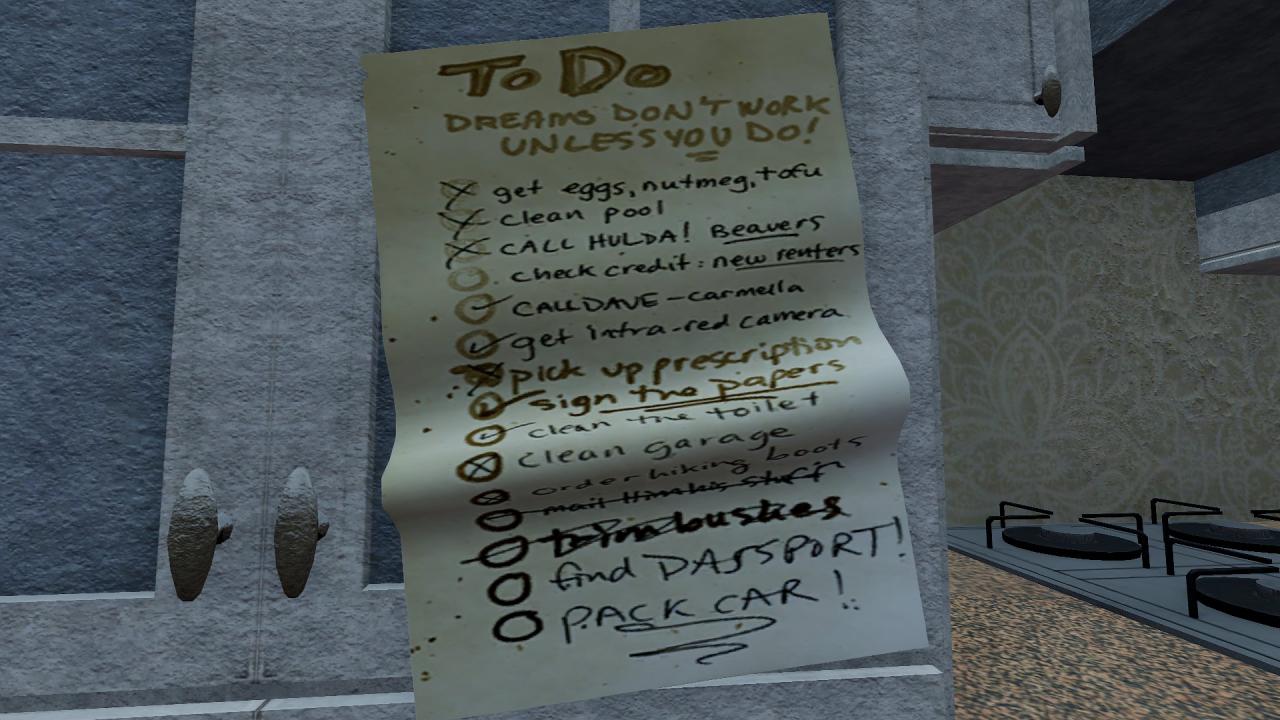 To Do
DREAMS DON'T WORK
UNLESS YOU DO!
get eggs, nutmeg, tofu
clean pool
CALL HULDA! Beavers
check credit: new renters
CALL DAVE - carmella
get infra-red camera
pick up prescription
sign the papers
clean the toilet
clean garage
order hiking boots
mail Him his stuff
trim bushes
find PASSPORT!
PACK CAR!